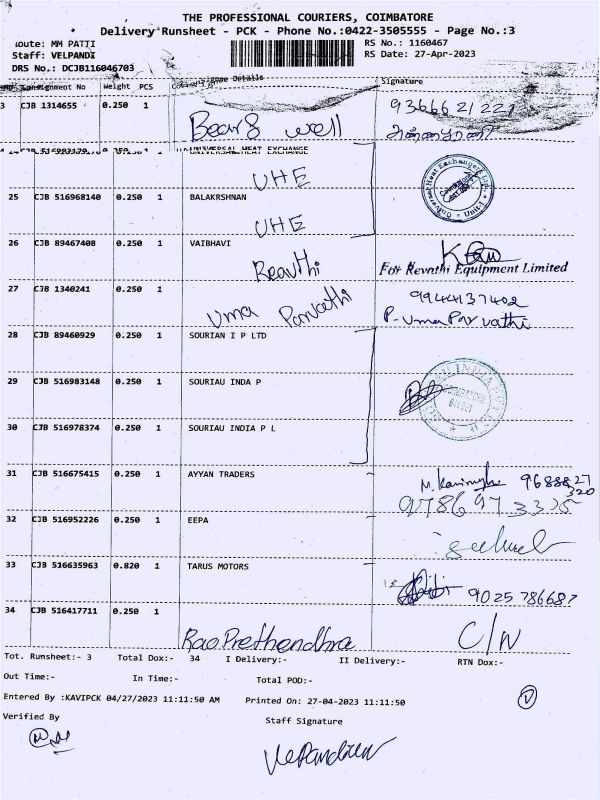 THE PROFESSIONAL COURIERS, COIMBATORE
Delivery Runsheet - PCK - Phone No.:0422-3505555 - Page No.:3
Route: MM PATTI
RS No.: 1160467
Staff: VELPANDI
RS Date: 27-Apr-2023
DRS No.: DCJB116046703
Consignment No Weight PCS Details Signature
3 CJB 1314655 0.250 1 Bearg well 9366621221
UNIVERSAL HEAT EXCHANGE
UHE
25 CJB 516968140 0.250 1 BALAKRSHNAN
UHE
26 CJB 89467408 0.250 1 VAIBHAVI
For Revathi Equipment Limited
27 CJB 1340241 0.250 1 9944137402
Uma Parvathi P. Uma Parvathi
28 CJB 89460929 0.250 1 SOURIAN I P LTD
29 CJB 516983148 0.250 1 SOURIAU INDA P
30 CJB 516978374 0.250 1 SOURIAU INDIA P L
31 CJB 516675415 0.250 1 AYYAN TRADERS
9786973325
32 CJB 516952226 0.250 1 EEPA
33 CJB 516635963 0.820 1 TARUS MOTORS
9025786687
34 CJB 516417711 0.250 1
C/N
Tot. Runsheet:- 3 Total Dox:- 34 I Delivery:- II Delivery:- RTN Dox:-
Out Time:- In Time:- Total POD:-
Entered By :KAVIPCK 04/27/2023 11:11:50 AM Printed On: 27-04-2023 11:11:50
Verified By Staff Signature